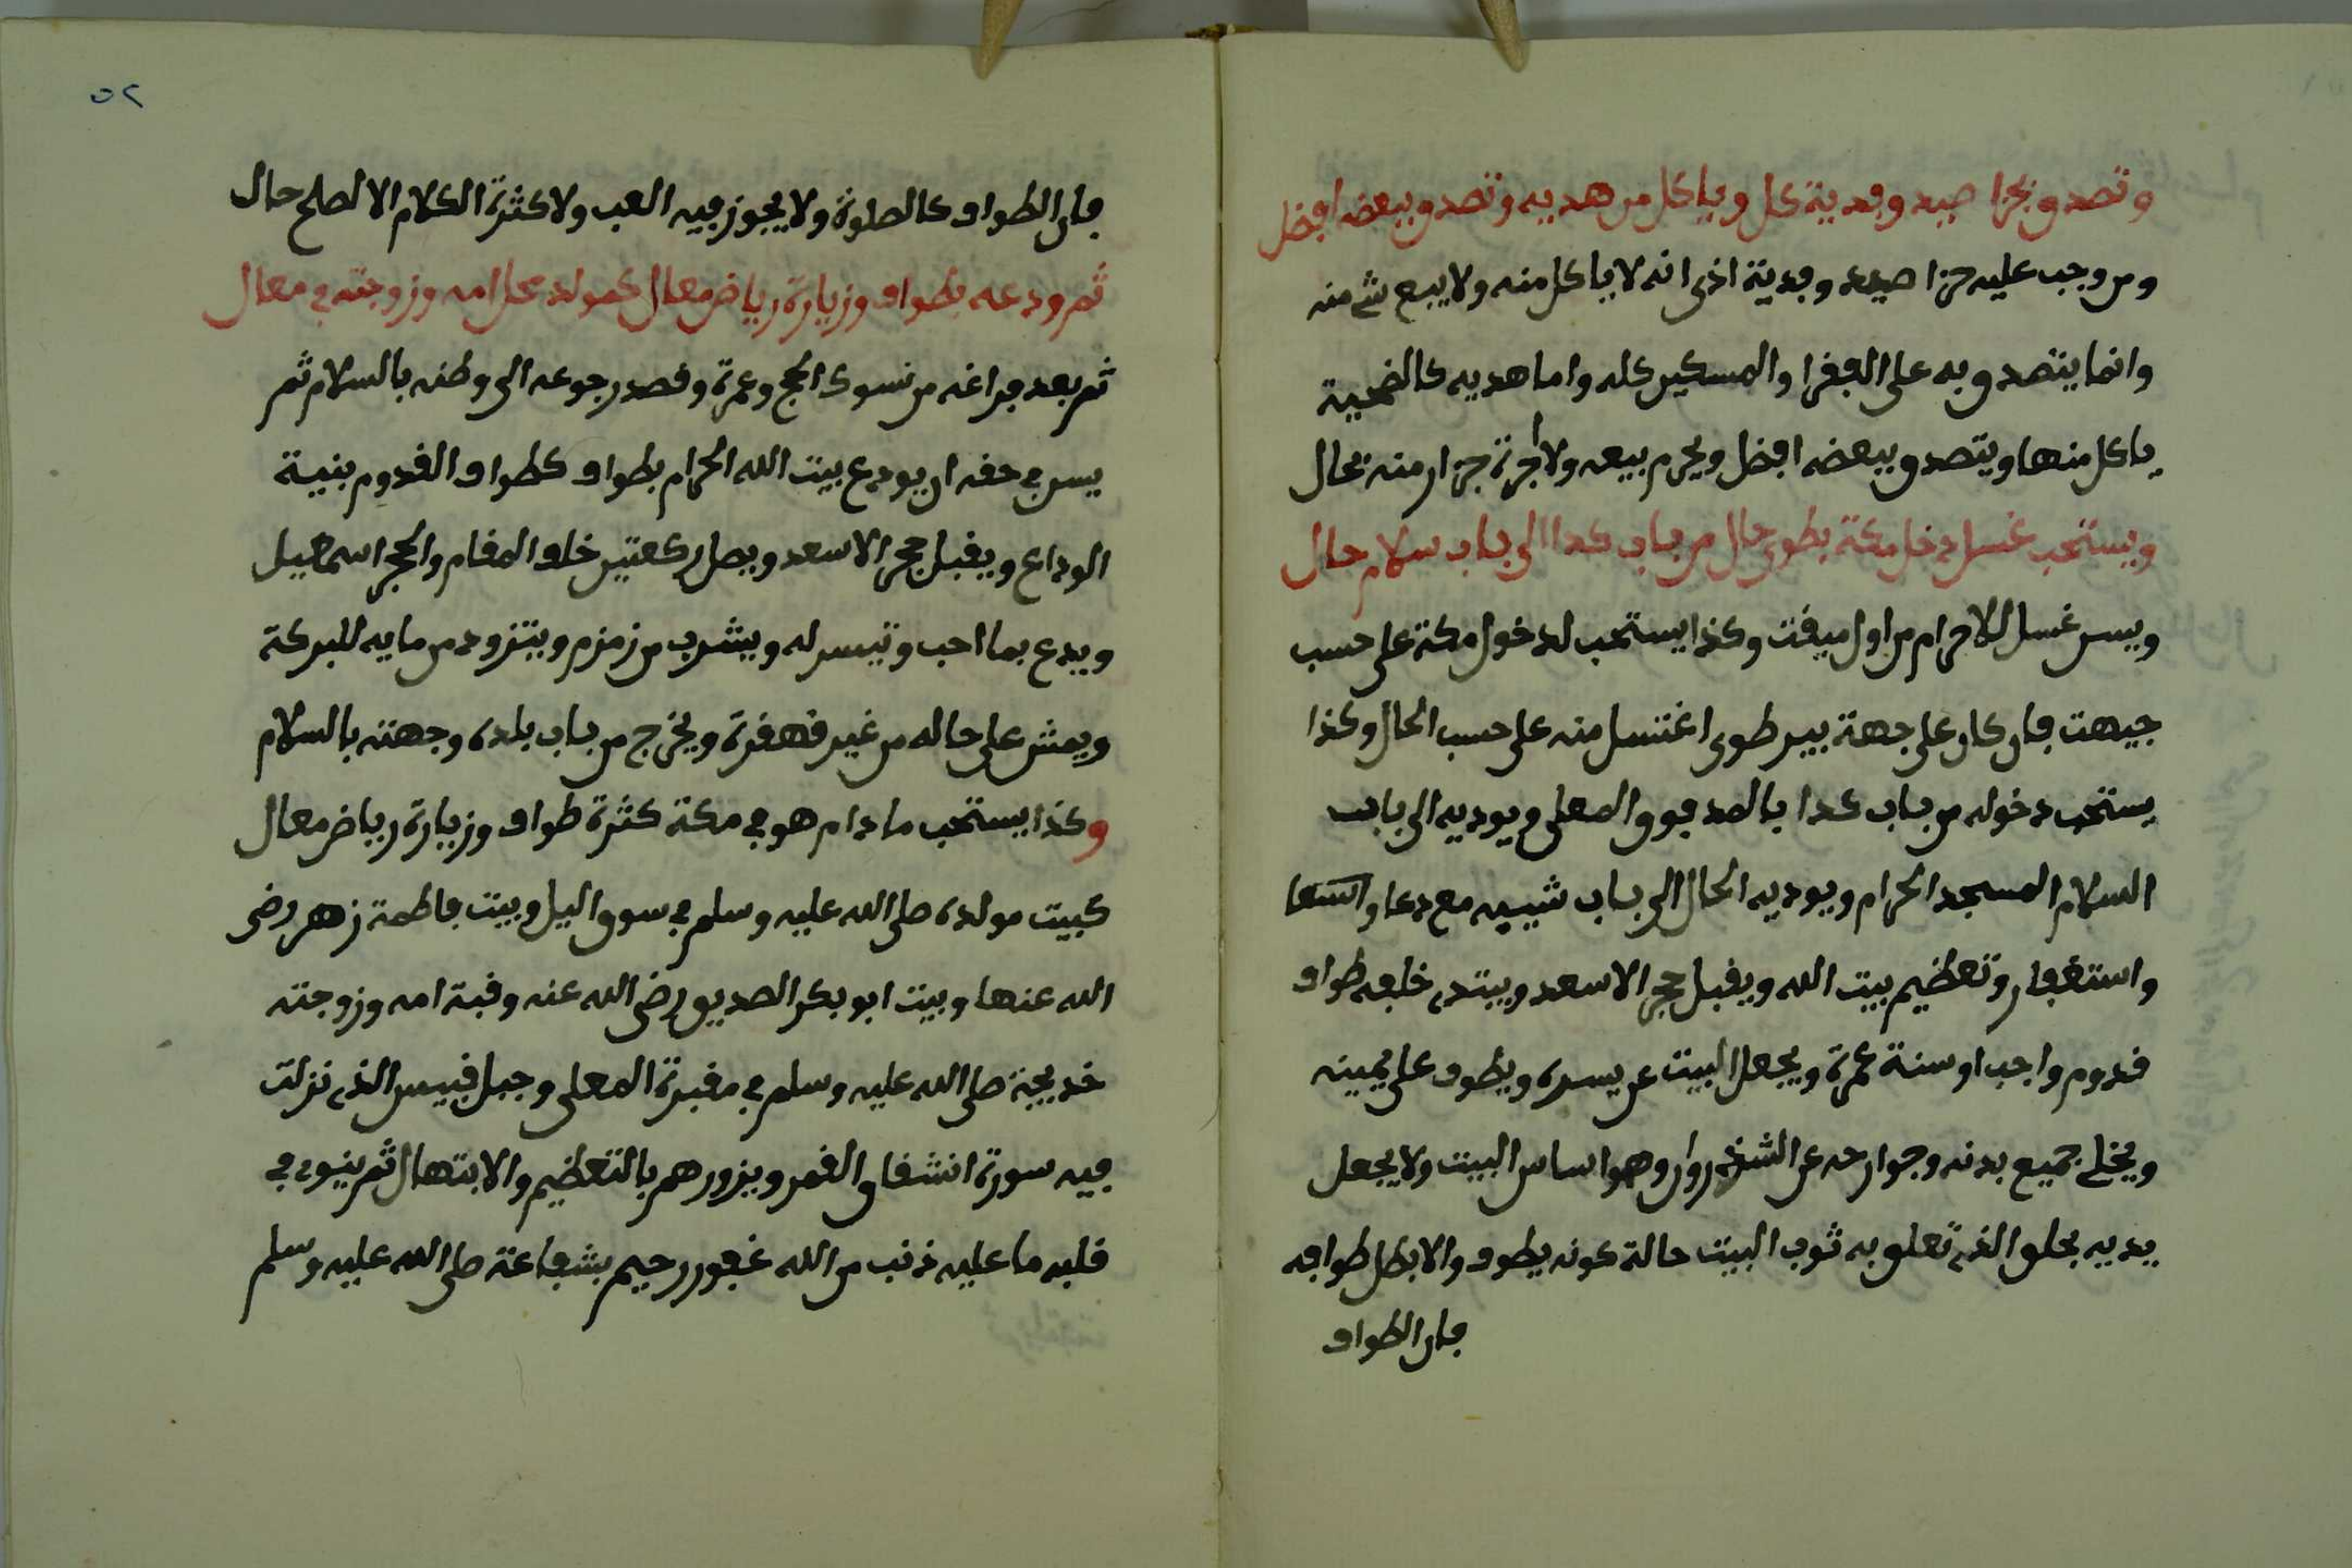 وتصدق بجزا صيد وفدية كل وياكل من هديه وتصدق ببعضه افضل
ومن وجب عليه جزا صيده وفدية اذى انه لا ياكل منه ولا يبع شي منه
وانما يتصدق به على الفقرا والمسكين كله واما هديه كالضحية
ياكل منها ويتصدق ببعضه افضل ويحرم بيعه ولا اجرة جزار منه بحال
ويستحب غسل دخل مكة بطوى حال من باب كدا الى باب سلام حال
ويسن غسل للاحرام من اول ميقت وكذا يستحب لدخول مكة على حسب
جيهت فان كان على جهة بير طوى اغتسل منه على حسب الحال وكذا
يستحب دخوله من باب كدا بالمد فوق المعلى ويوديه الى باب
السلام المسجد الحرام ويوديه الحال الى باب شيبه مع دعا
واستغفار وتعظيم بيت الله ويقبل حجر الاسعد ويبتدي خلفه طواف
قدوم واجب او سنة عمرة ويجعل البيت عن يسره ويطوف على يمينه
ويخلي جميع بدنه وجوارحه عن الشذروان وهو اساس البيت ولا يجعل
يديه بحلق الذي تعلق به ثوب البيت حالة كونه يطوف والا بطل طوافه
فان الطواف
٥٢
فان الطواف كالصلوة ولا يجوز فيه العب ولا كثرة الكلام الا لصلح حال
ثم ودعه بطواف وزيارة رياض معال كمولد محل امه وزوجته في معال
ثم بعد فراغه من نسوك الحج وعمرة وقصد رجوعه الى وطنه بالسلام ثم
يسن في حقه ان يودع بيت الله الحرام بطواف كطواف القدوم بنية
الوداع ويقبل حجر الاسعد ويصل ركعتين خلف المقام والحجر اسمعيل
ويدع بما احب وتيسر له ويشرب من زمزم ويتزود من مايه للبركة
ويمش على حاله من غير قهقرة ويخرج من باب بلده وجهته بالسلام
وكذا يستحب ما دام هو في مكة كثرة طواف وزيارة رياض معال
كبيت مولده صلى الله عليه وسلم في سوق اليل وبيت فاطمة زهر رضى
الله عنها وبيت ابو بكر الصديق رضى الله عنه وقبة امه وزوجته
خديجة صلى الله عليه وسلم في مقبرة المعلى وجبل قبيس الذي نزلت
فيه سورة انشقاق القمر ويزورهم بالتعظيم والابتهال ثم ينوي في
قلبه ما عليه ذنب من الله غفور رحيم بشفاعة صلى الله عليه وسلم